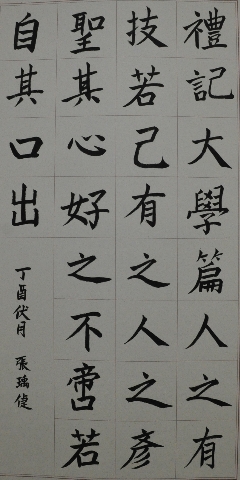 禮記大學篇人之有
技若己有之人之彥
聖其心好之不啻若
自其口出
丁酉伏月 張瑀倢